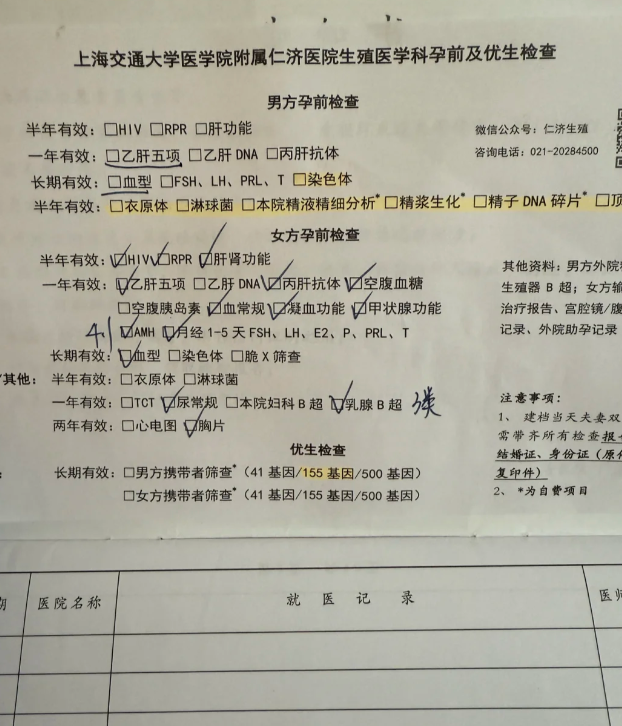 上海交通大学医学院附属仁济医院生殖医学科孕前及优生检查
男方孕前检查
半年有效：□HIV □RPR □肝功能
微信公众号：仁济生殖
一年有效：□乙肝五项 □乙肝 DNA □丙肝抗体
咨询电话：021-20284500
长期有效：□血型 □FSH、LH、PRL、T □染色体
半年有效：□衣原体 □淋球菌 □本院精液精细分析* □精浆生化* □精子 DNA 碎片* □顶
女方孕前检查
半年有效：☑HIV ☑RPR ☑肝肾功能
一年有效：☑乙肝五项 □乙肝 DNA ☑丙肝抗体 ☑空腹血糖
□空腹胰岛素 ☑血常规 ☑凝血功能 ☑甲状腺功能
41 ☑AMH ☑月经 1-5 天 FSH、LH、E2、P、PRL、T
长期有效：☑血型 □染色体 □脆 X 筛查
其他资料：男方外院
生殖器 B 超；女方输
治疗报告、宫腔镜/腹
记录、外院助孕记录
/其他： 半年有效：□衣原体 □淋球菌
一年有效：□TCT ☑尿常规 □本院妇科 B 超 ☑乳腺 B 超 3类
两年有效：□心电图 ☑胸片
优生检查
长期有效：□男方携带者筛查*（41 基因/155 基因/500 基因）
□女方携带者筛查*（41 基因/155 基因/500 基因）
注意事项：
1、 建档当天夫妻双
需带齐所有检查报
结婚证、身份证（原件
复印件）
2、 *为自费项目
期 医院名称 就 医 记 录 医师